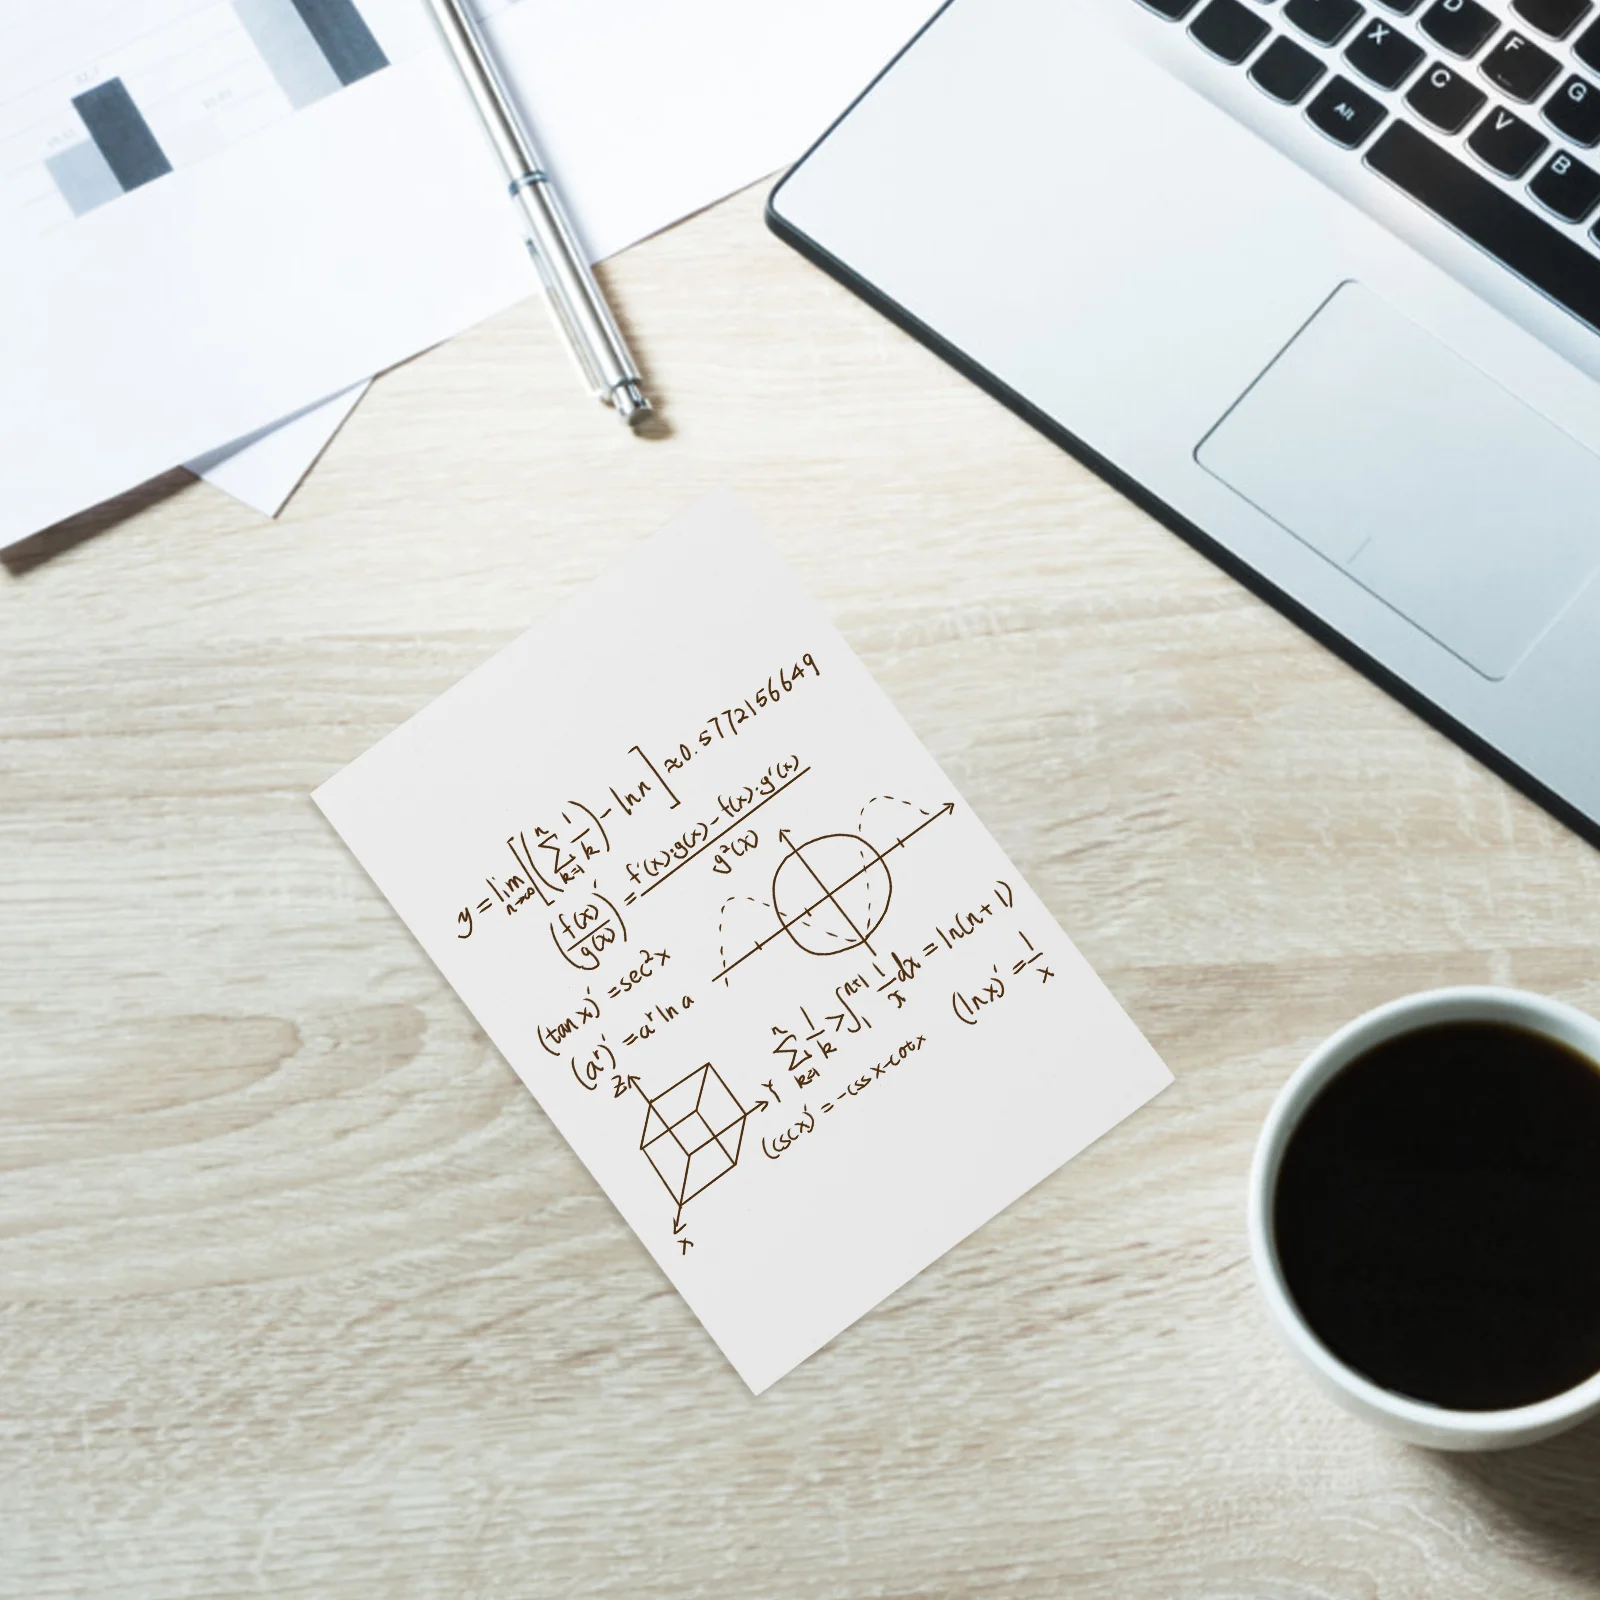 y = lim n→∞ [(∑ k=1 n 1/k) - ln n] ≈ 0.5772156649
(f(x)/g(x))' = f'(x)·g(x) - f(x)·g'(x) / g²(x)
(tan x)' = sec²x
(aˣ)' = aˣ ln a
∑ k=1 n 1/k > ∫ 1 n+1 1/x dx = ln(n+1)
(ln x)' = 1/x
(csc x)' = -csc x·cot x
Z
Y
X
D
X
F
C
G
Alt
V
B